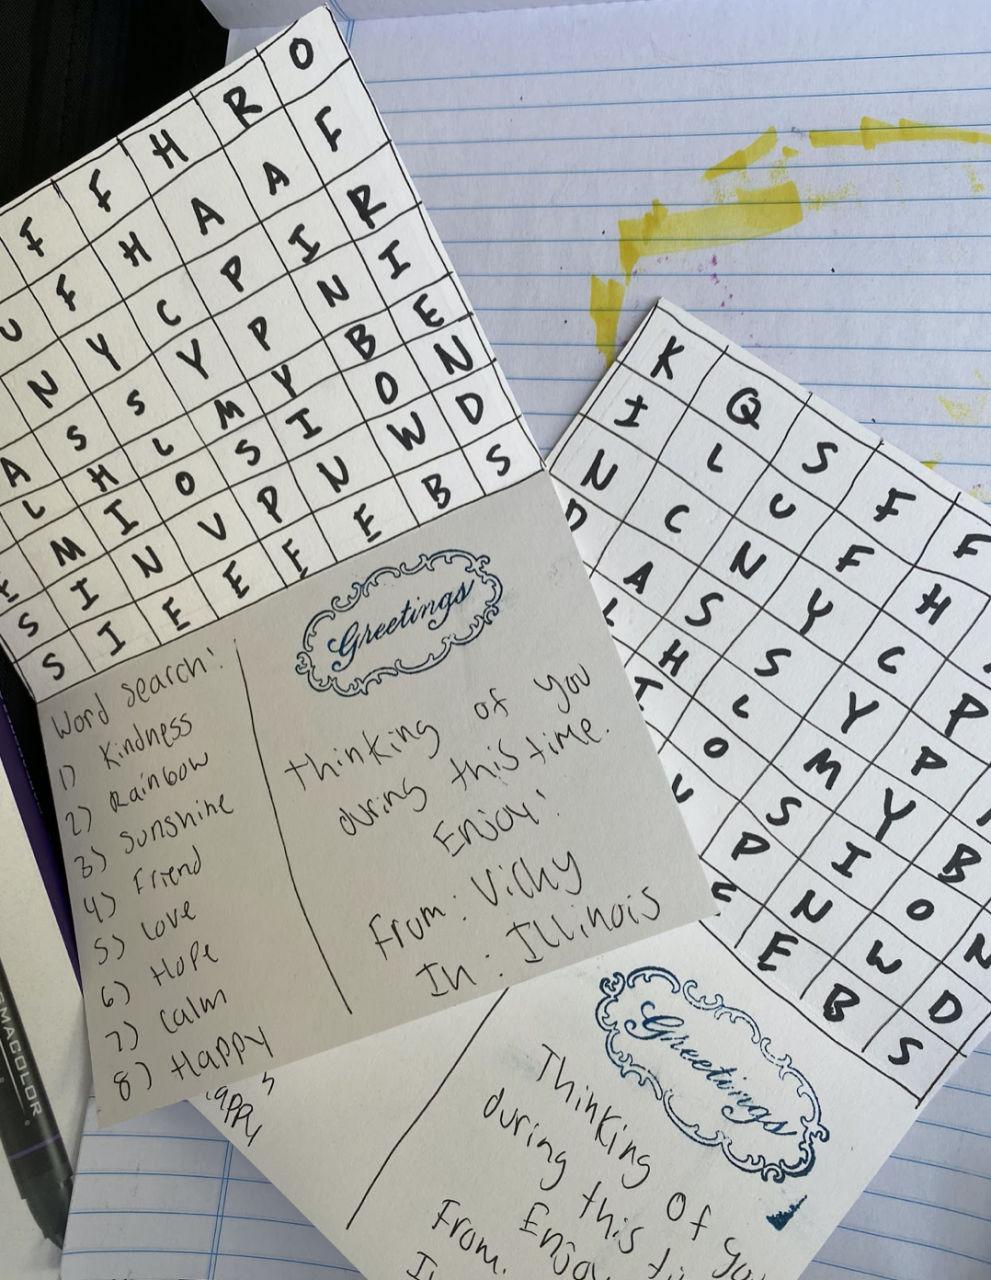 F F H R O
U F H A A F
N Y C P I R
A S S Y P N I
L H L M Y B E
E M I O S I O N
S I N V P N W D
S I E E E E B S
Word search:
1) Kindness
2) Rainbow
3) Sunshine
4) Friend
5) Love
6) Hope
7) Calm
8) Happy
Greetings
Thinking of you
during this time.
Enjoy!
From: Vicky
In: Illinois
K Q S F F
I L U F H
N C N Y C P
D A S S Y P
L H L M Y B
I O S I O N
V P N W D
E E B S
appy
Greetings
Thinking of you
during this ti
Enjoy
From.
I
MACOLOR